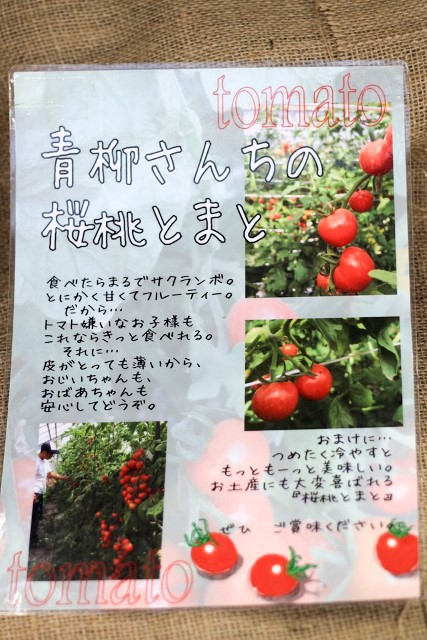 tomato
青柳さんちの
桜桃とまと
食べたらまるでサクランボ。
とにかく甘くてフルーティー。
だから…
トマト嫌いなお子様も
これならきっと食べれる。
それに…
皮がとっても薄いから、
おじいちゃんも、
おばあちゃんも
安心してどうぞ。
おまけに…
つめたく冷やすと
もっともーっと美味しい。
お土産にも大変喜ばれる
『桜桃とまと』
ぜひ　ご賞味ください。
tomato